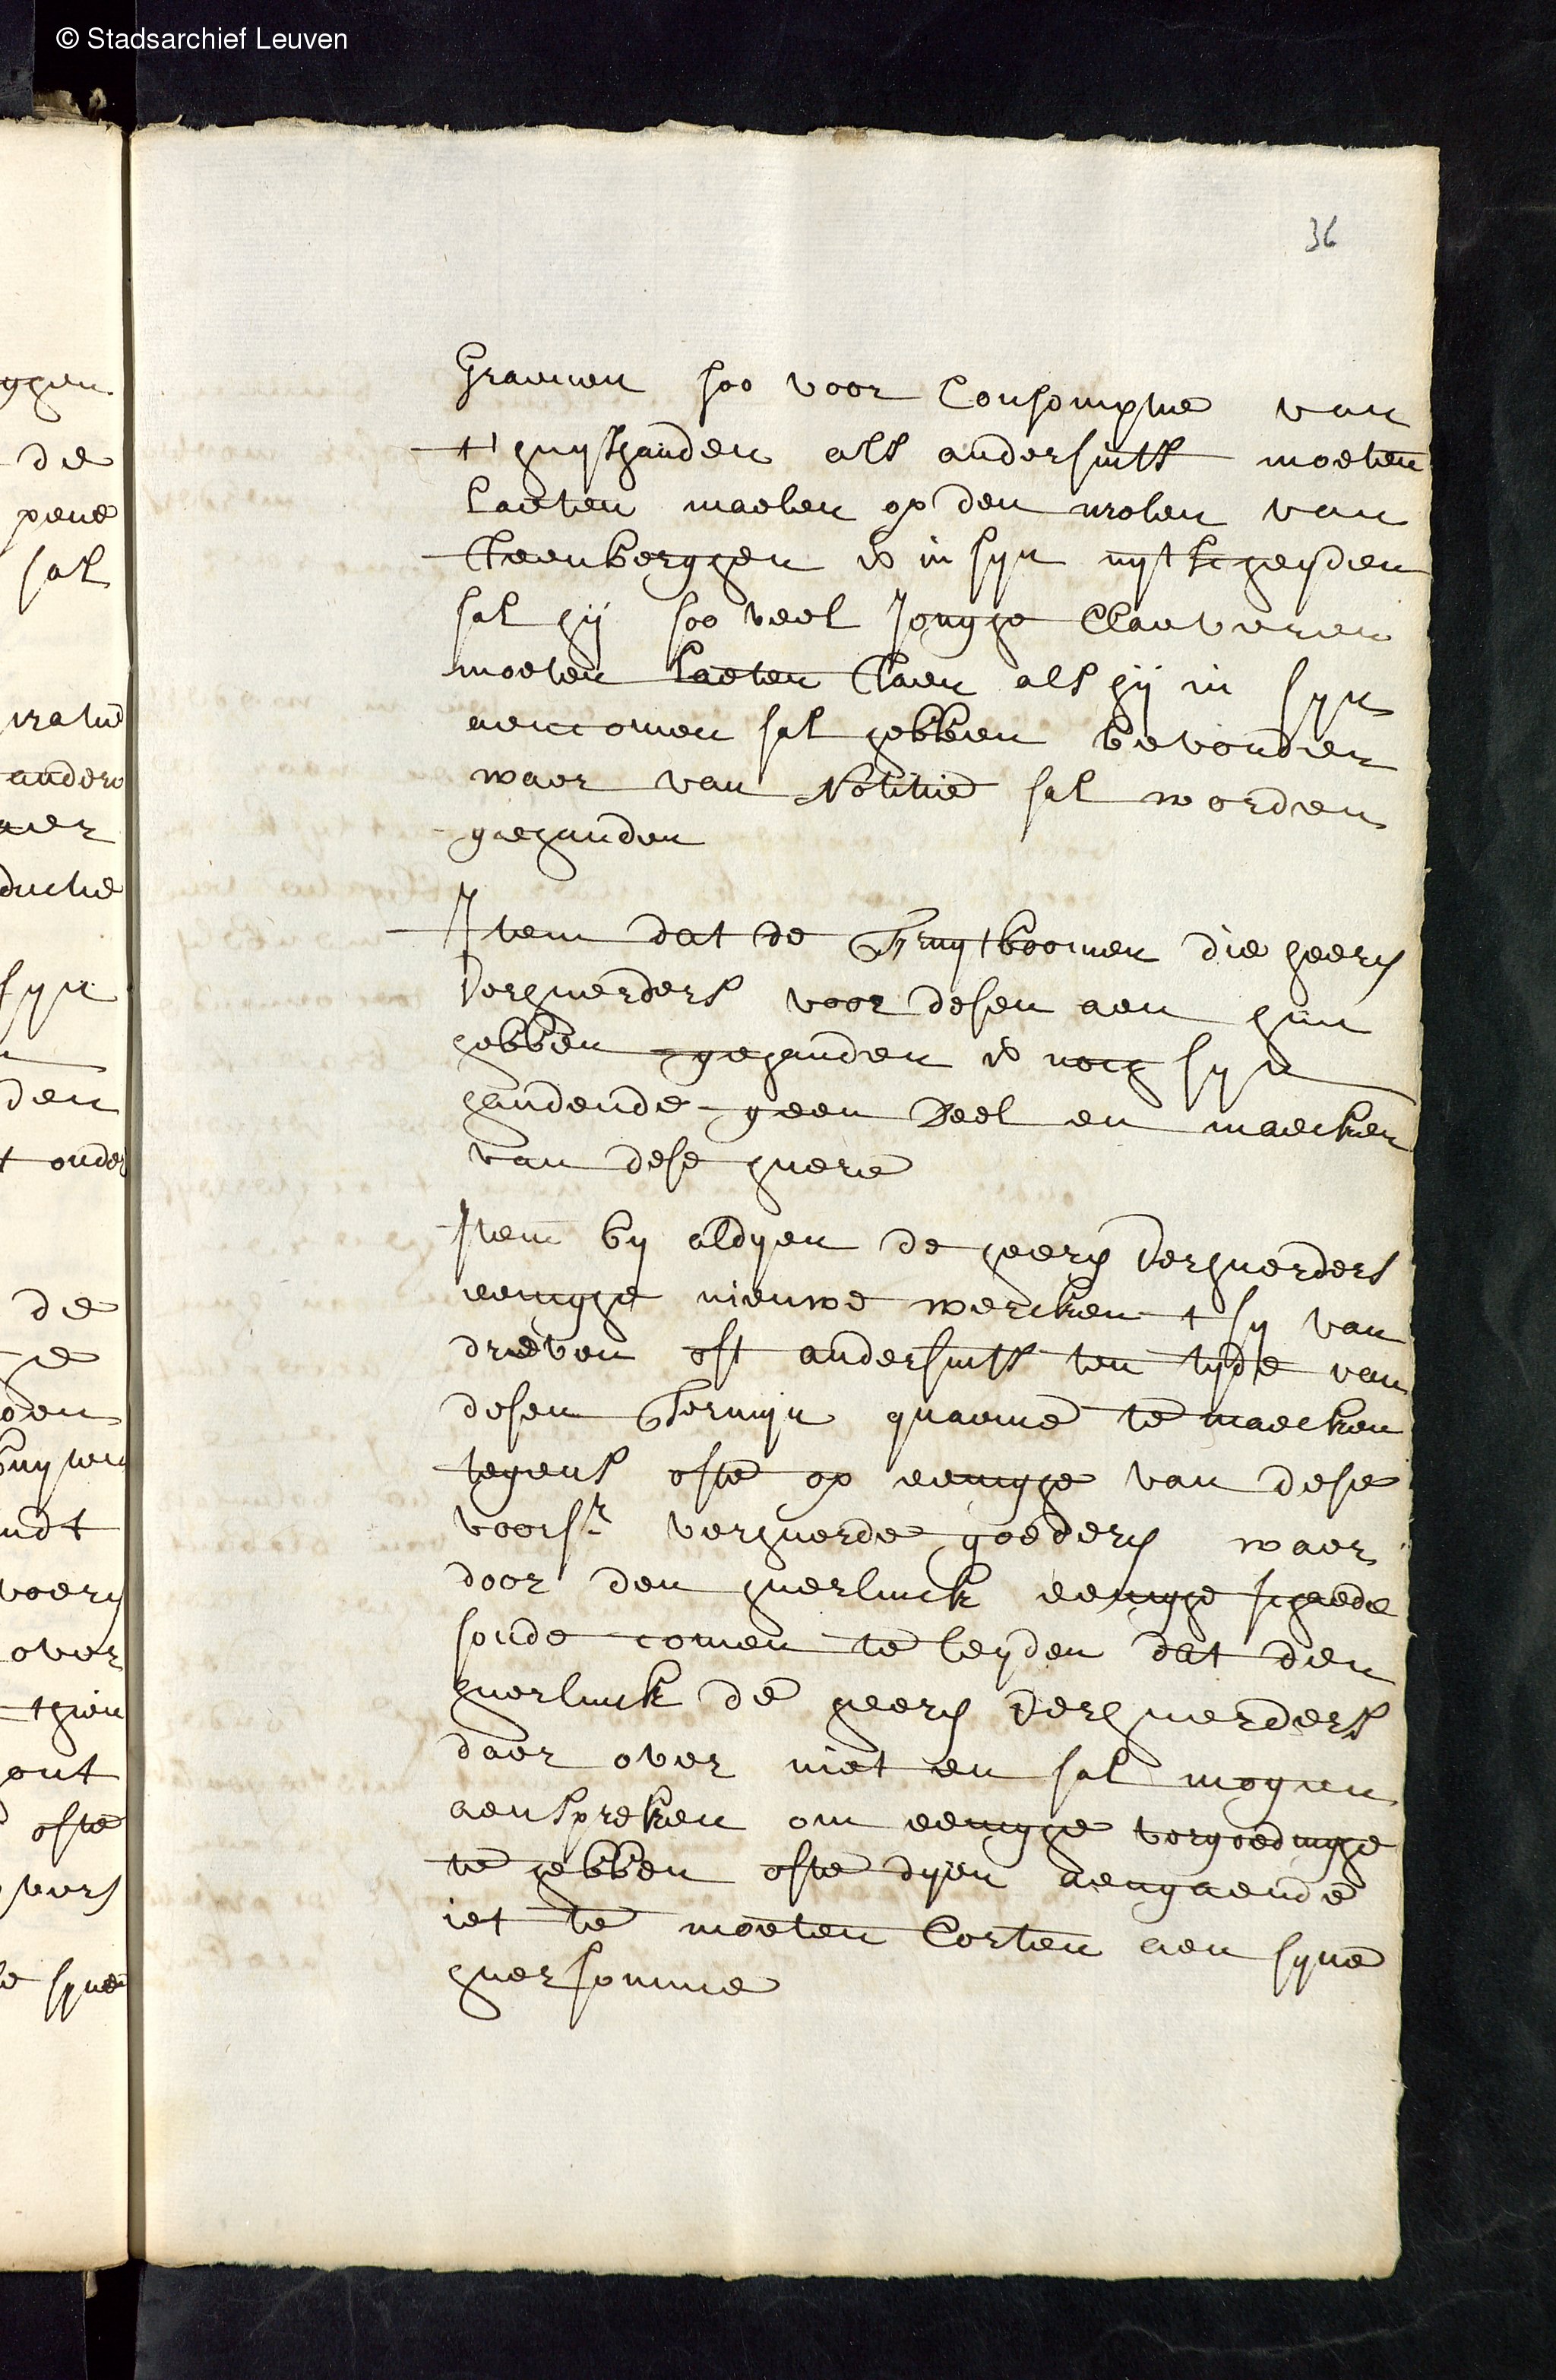 © Stadsarchief Leuven
36
Graenen soo voor Consomptie van
t'huyshauden als andersints moeten
laeten maelen op den molen van
Cleenbergghen is in syn uytscheyden
sal hij soo veel Jongge Claeveren
moeten laeten staen als hij in syn
aencomen sal hebben bevonden
waer van Notitie sal worden
gehauden
Item dat de Fruytboomen die heeren
Verhuerders voor desen aen hun
hebben gehauden is noch syn
haudende geen Deel en maecken
van dese huere
Item by aldyen de heeren Verhuerders
eenigge nieuwe wercken t sy van
dreven oft andersints ten tyde van
desen Termyn quaeme te maecken
tegens ofte op eenigge van dese
voorsr verhuerde goederen waer
door den huerlinck eenigge schaede
soude comen te leyden dat den
huerlinck de heeren Verhuerders
daer over niet en sal mogen
aenspreken om eenigge vergoedinge
te hebben ofte dyen aengaende
iet te moeten Corten aen syne
huersomme
ggen
de
sal
andere
syn
den
t onder
de
over
ofte
syne